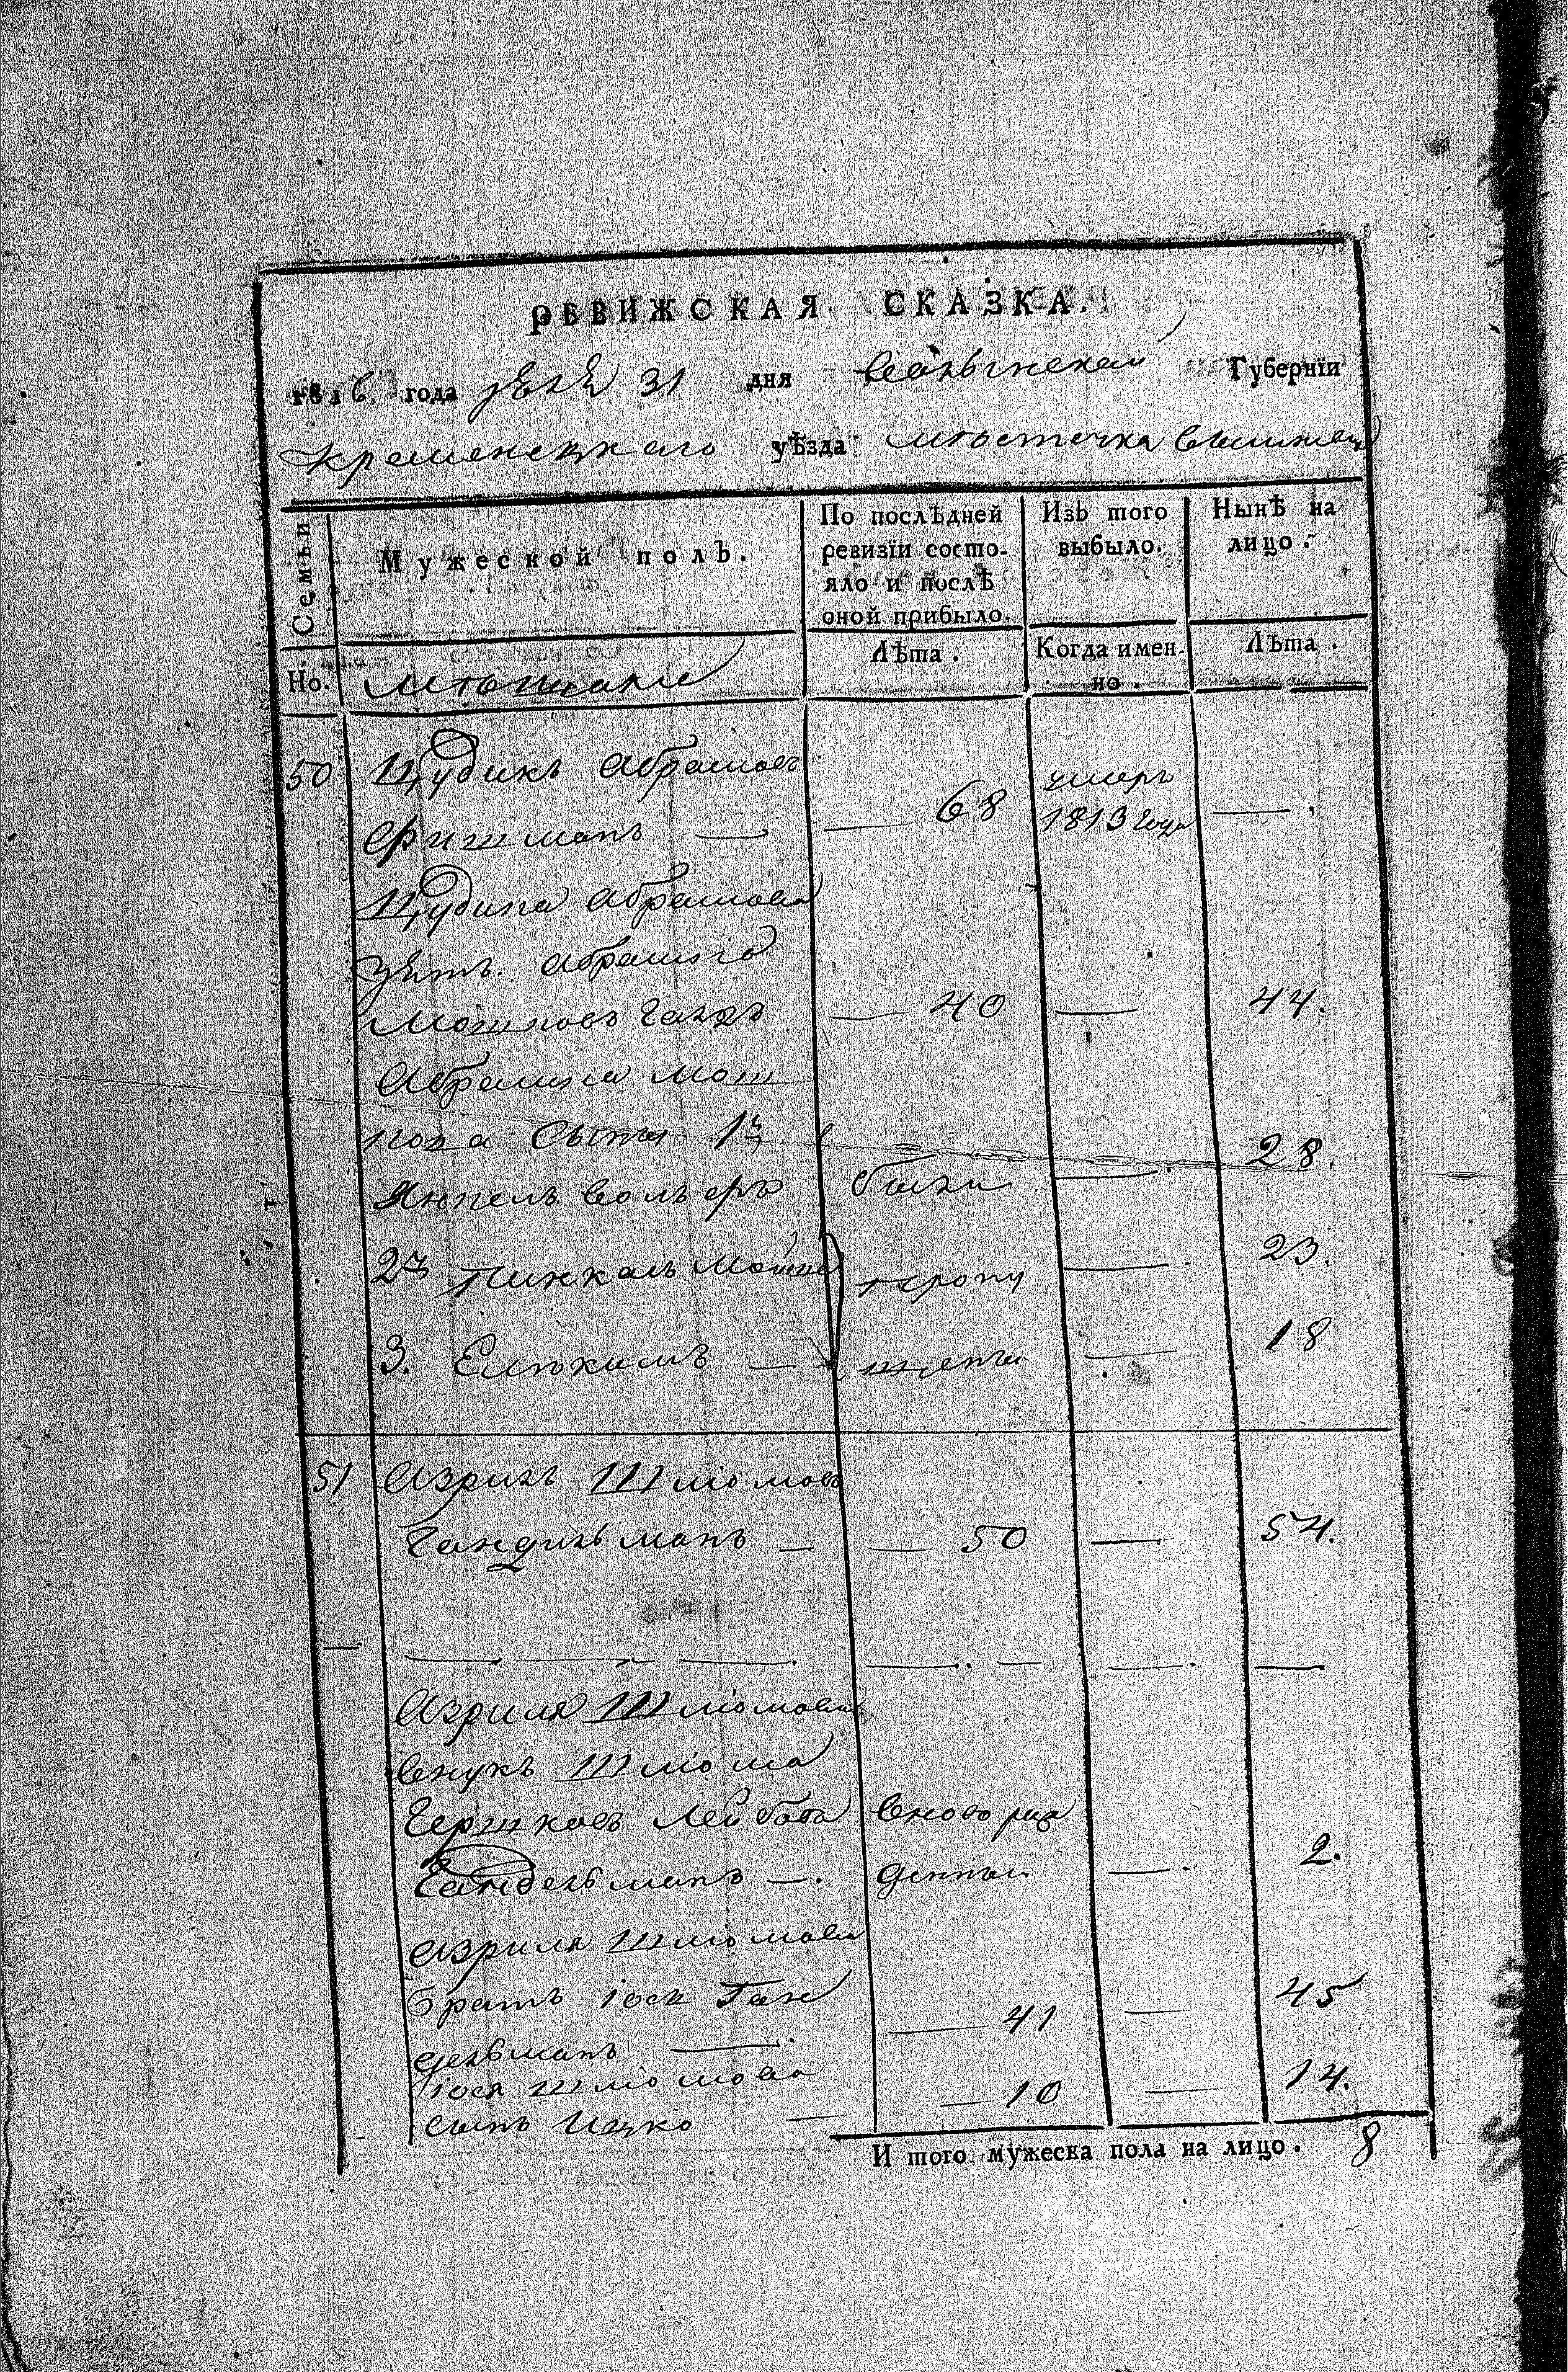 РЕВИЖСКАЯ СКАЗКА.
1816 года 31 дня Волынской Губерніи
Кременецкаго уѣзда мѣстечка
Семьи
Мужеской полъ.
По послѣдней ревизіи состо-
яло и послѣ
оной прибыло.
Изъ того
выбыло.
Нынѣ на
лицо.
Но.
мѣщане
Лѣта.
Когда имен-
но.
Лѣта.
50 Цудикъ Абрамовъ
Фишманъ — — 68 умеръ 1813 года —
Цудика Абрамова
зять Абрамко
Мошковъ — 40 — 44.
Абрамка Мош
кова сыны 1й
были — 28.
2й Пинкасъ пропу — 23.
3. — щены — 18
51 Азриль Шліомовъ
Гандильманъ — — 50 — 54.
Азриля Шліомова
внукъ Шліома
Гершковъ Лейбовъ вново рож
Гандельманъ —. денный — 2.
Азриля Шліомова
братъ Іось Ган
дельманъ — — 41 — 45
Іося Шліомова
сынъ Ицко — — 10 — 14.
И того мужеска пола на лицо. 8